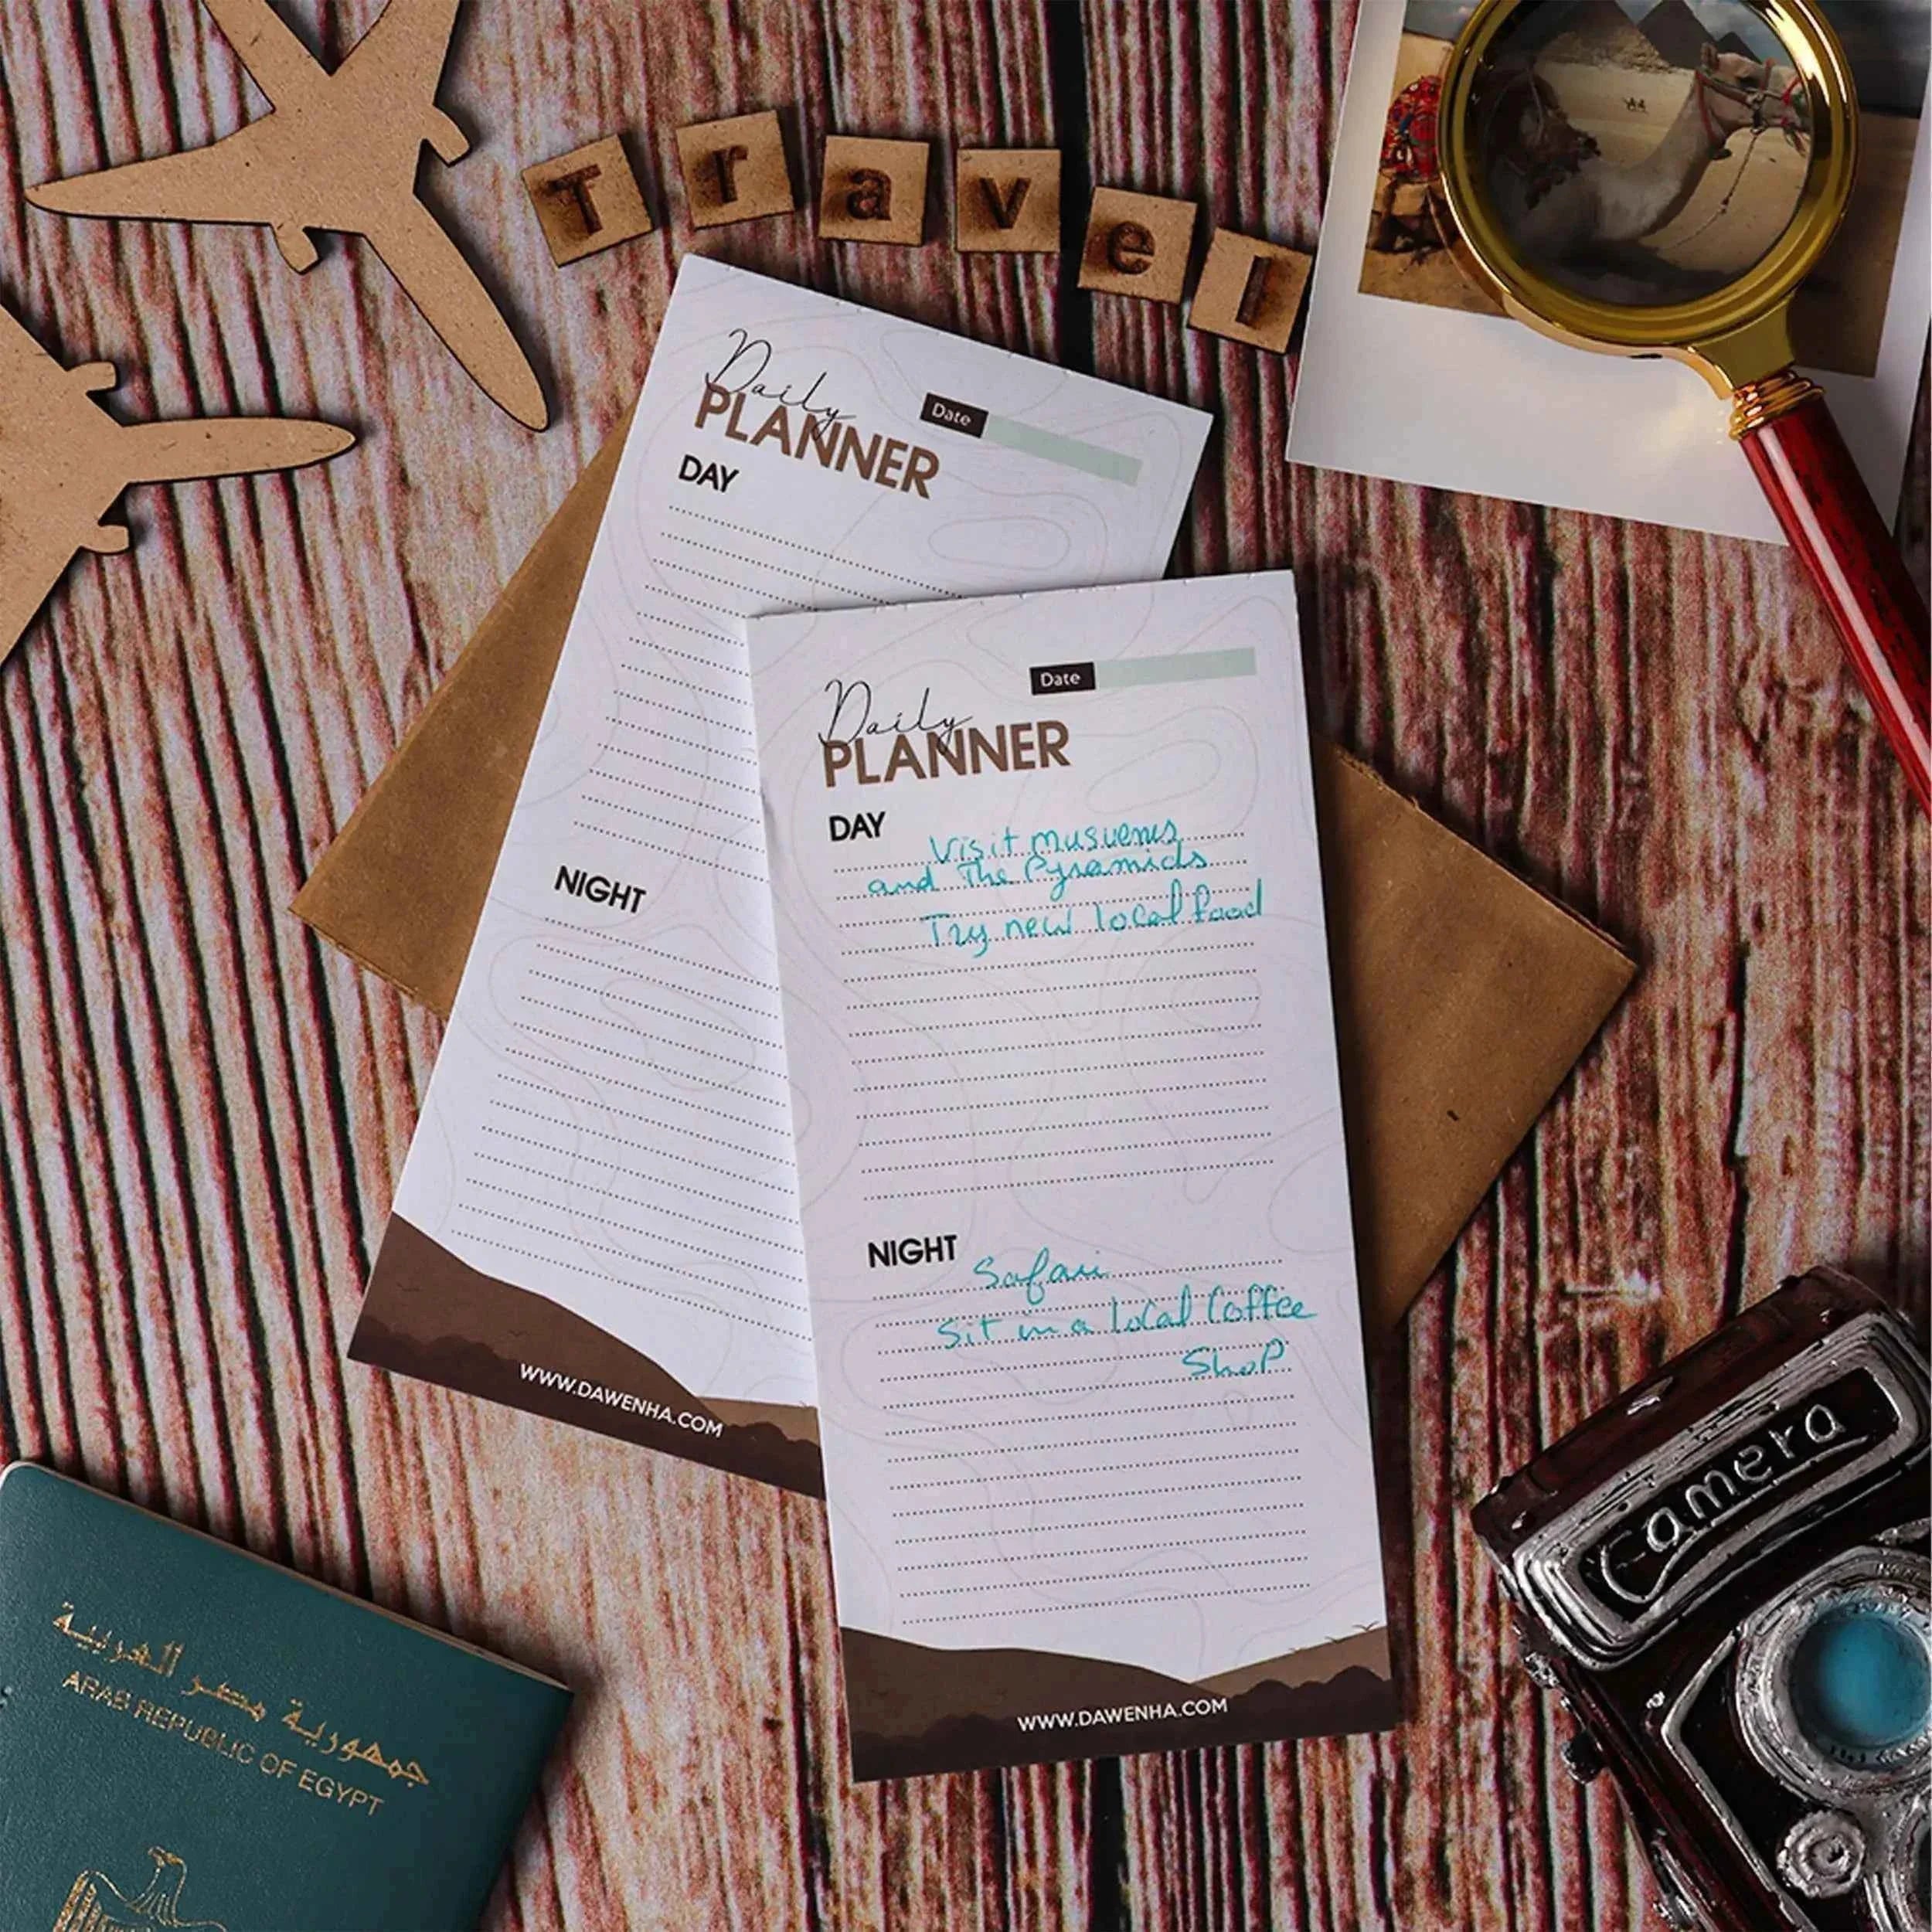 Travel
Daily
PLANNER
Date
DAY
NIGHT
WWW.DAWENHA.COM
Daily
PLANNER
Date
DAY
Visit musuems
and The Pyramids
Try new local food
NIGHT
Safari
Sit in a local Coffee
Shop
WWW.DAWENHA.COM
جمهورية مصر العربية
ARAB REPUBLIC OF EGYPT
Camera